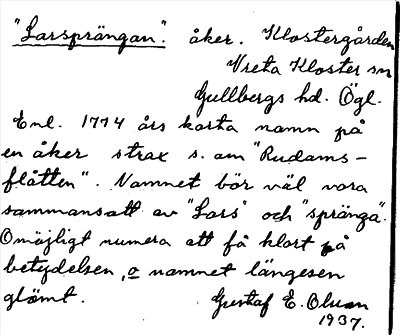 "Larsprängan". åker. Klostergården
Vreta Kloster sn
Gullbergs hd. Ögl.
Enl. 1774 års karta namn på
en åker strax s. om "Rudams-
flåtten". Namnet bör väl vara
sammansatt av "Lars" och "spränga".
Omöjligt numera att få klart på
betydelsen, o namnet längesen
glömt. Gustaf E. Olsson
1937.